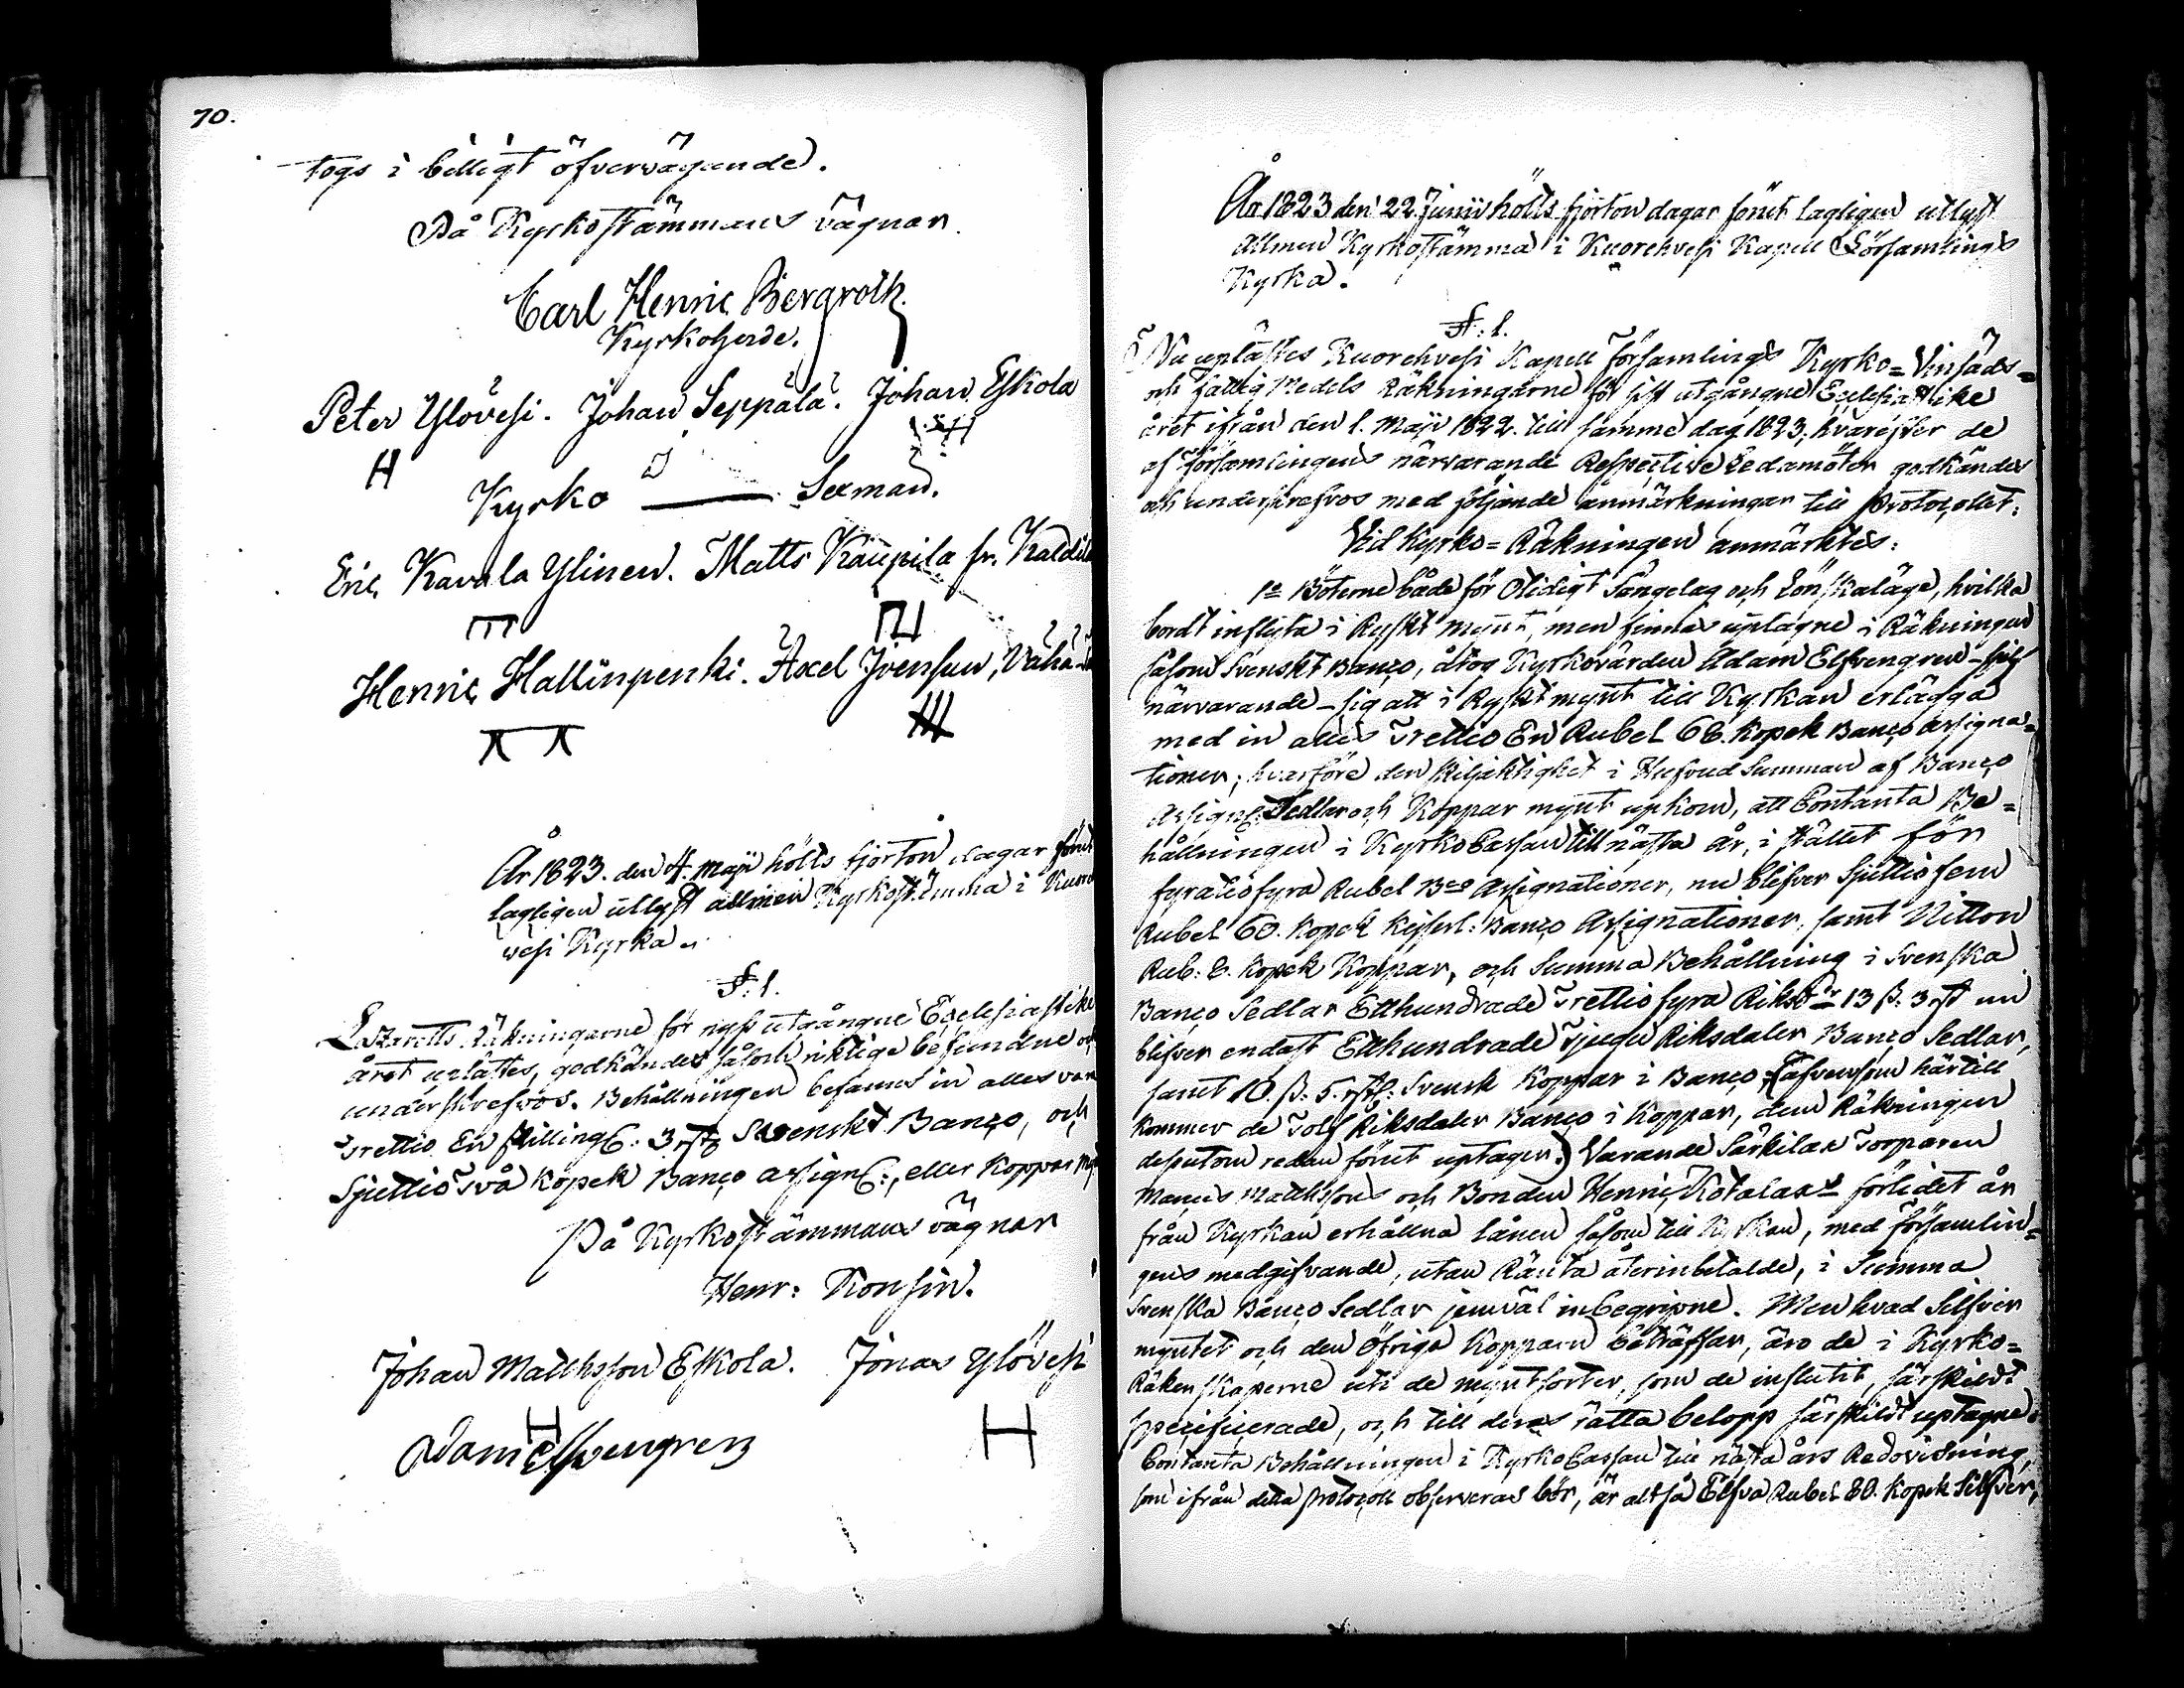 70.
togs i billigt öfvervägande.
På Kyrkostämmans vägnar.
Carl Henric Bergroth.
Kyrkoherde.
Peter Ylövesi. Johan Seppälä. Johan Eskola
Kyrko Sexman.
Eric Kavala Ylinen. Matts Käupila fr.
Henric Hallinpenki. Axel Ivensuu, Vähä-
År 1823. den 4. Maji hölts fjorton dagar förut
lagligen utlyst allmen Kyrkostämma i Kuore
vesi Kyrka.
§. 1.
Lazaretts Räkningarne för nyss utgångne Ecclesiastike
året uplästes, godkändes såsom riktige befundne och
underskrefvos. Behållningen befanns in alles vara
Trettio En skilling 3 rst Svenskt Banco, och
Sjuttio Två Kopek Banco assign:, eller Koppar
På Kyrkostämmans vägnar
Henr: Konsin.
Johan Matthsson Eskola. Jonas Ylövesi
Adam Elfvengren
År 1823 den 22. Junii hölts fjorton dagar förut lagligen utlyst
Allmen Kyrkostämma i Kuorehvesi Kapell Församlings
Kyrka.
§. 1.
Nu uplästes Kuorehvesi Kapell Församlings Kyrko- Vinsäds-
och fattig Medels Räkningarne för sist utgångne Ecclesiastike
året ifrån den 1. Maji 1822. till samme dag 1823, hvarefter de
af Församlingens närvarande Respective Ledamöter godkändes
och underskrefvos med följande anmärkningar till Protocollet:
Vid Kyrko-Räkningen anmärktes:
1o Böterne både för Otidigt Sängelag och Lönskaläge, hvilka
bordt inflyta i Ryskt mynt, men finnas uptagne i Räkningen
såsom Svenskt Banco, åtog Kyrkovärden Adam Elfvengren - sjelf
närvarande - sig att i Ryskt mynt till Kyrkan erlägga
med in alles Trettio En Rubel 68. Kopek Banco assigna-
tioner; hvarföre den skiljaktighet i Hufvud Summan af Banco
Assign: Sedlar och Koppar mynt upkom, att Contanta Be-
hållningen i KyrkoCassan till nästa år, i stället för
fyratiofyra Rubel Bco Assignationer, nu blifver Sjuttiofem
Rubel 60. Kopek Kejserl: Banco Assignationer, samt Nitton
Rub: 8. Kopek Koppar, och Summa Behållning i Svenska
Banco Sedlar Etthundrade Trettiofyra Riksdr 13 ß. 3 rst nu
blifver endast Etthundrade Tjugu Riksdaler Banco Sedlar,
samt 10. ß. 5. rst: Svensk Koppar i Banco; (äfvensom härtill
kommer de Tolf Riksdaler Banco i Koppar, dem Räkningen
desutom redan förut uptager.) Varande Särkilax Torparen
Manus Matthssons och Bonden Henric Kotalaxs förlidet år
från Kyrkan erhållna lånen såsom till Kyrkan, med Församlin-
gens medgifvande, utan Ränta återinbetalde, i Summa
Svenska Banco Sedlar jemväl inbegripne. Men hvad Silfver
myntet och den Öfriga Kopparn beträffar, äro de i Kyrko-
Räkenskaperne uti de myntsorter, som de influtit, särskildt
specificerade, och till deras rätta belopp särskildt uptagne.
Contanta Behållningen i KyrkoCassan till nästa års Redovisning,
som ifrån detta Protocoll observeras bör, är altså Elfva Rubel 80. Kopek Silfver,